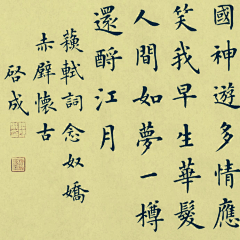 國神遊多情應
笑我早生華髮
人間如夢一樽
還酹江月
蘇軾詞念奴嬌
赤壁懷古
啓成